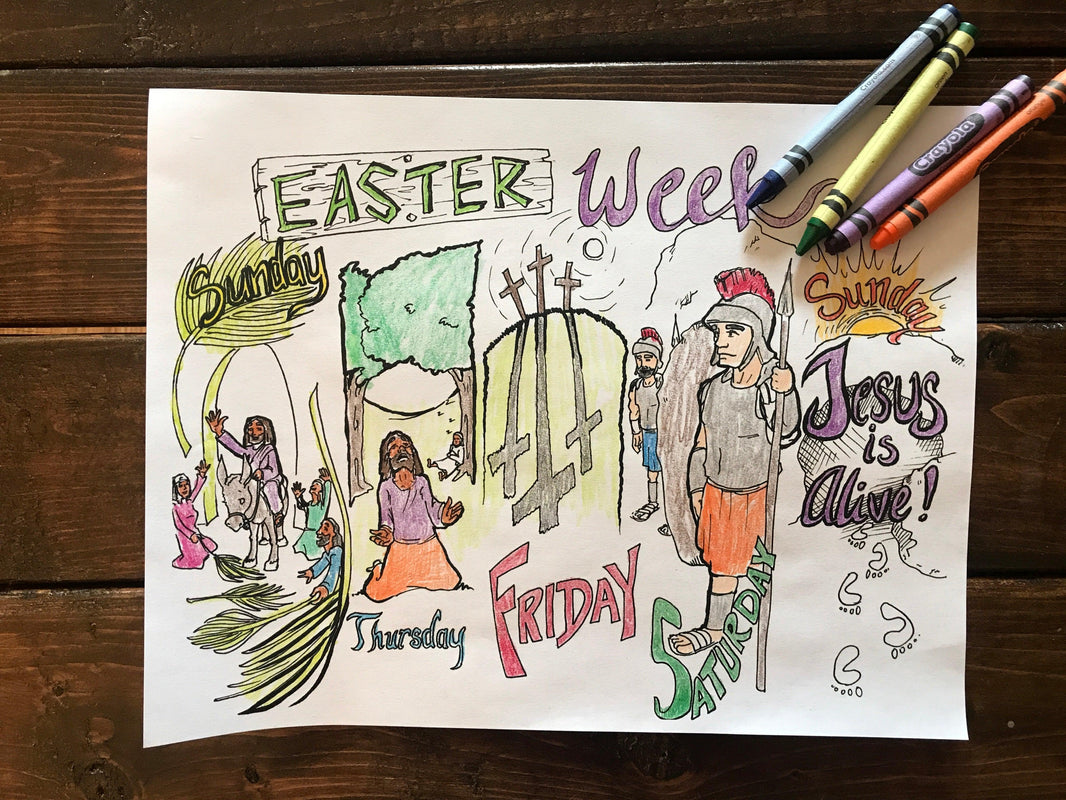 EASTER Week
Sunday
Thursday
FRIDAY
SATURDAY
Sunday
Jesus
is
Alive!
Crayola.com
Crayola